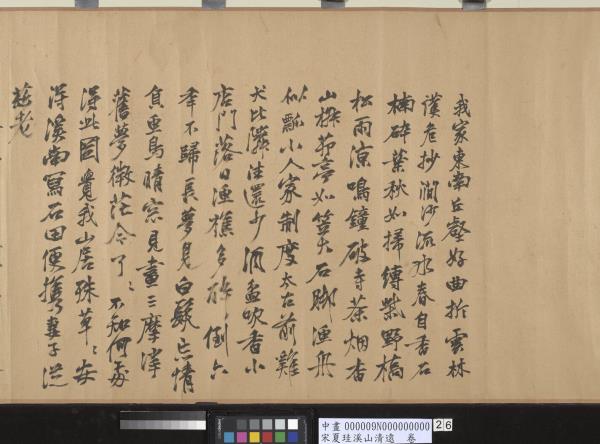 我家東南丘壑好曲折雲林
漢危抄澗沙流水春自香石
楠碎葉秋如掃縛柴野橋
松雨涼鳴鐘破寺茶烟香
山探茆亭如笠大石腳漁舟
似瓢小人家制度太古前雞
犬比鄰往還少酒盃吹香小
店門落日漁樵多醉倒六
年不歸長夢見白髮忘情
負魚鳥晴窗見畫三摩挲
舊夢微茫今了了不知何處
得此圖覺我山居殊草草安
得溪南寫石田便携妻子從
茲老
中畫 000009N000000000 26
宋夏珪溪山清遠 卷